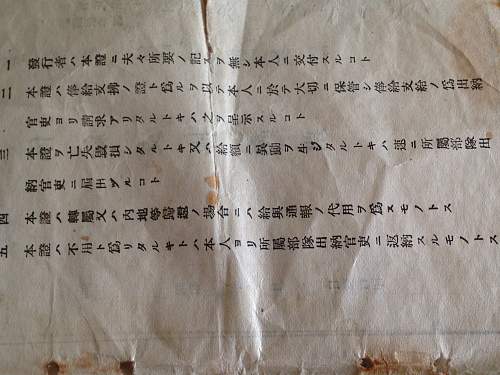 一 發行者ハ本證ニ夫々所要ノ記入ヲ無シ本人ニ交付スルコト
二 本證ハ俸給支拂ノ證ト爲ルヲ以テ本人ニ於テ大切ニ保管シ俸給支給ノ爲出納
官吏ヨリ請求アリタルトキハ之ヲ呈示スルコト
三 本證ヲ亡失毀損シタルトキ又ハ給額ニ異動ヲ生ジタルトキハ速ニ所屬部隊出
納官吏ニ屆出ヅルコト
四 本證ハ轉屬又ハ內地等歸還ノ場合ニハ給與通報ノ代用ヲ爲スモノトス
五 本證ハ不用ト爲リタルキトハ本人ヨリ所屬部隊出納官吏ニ返納スルモノトス